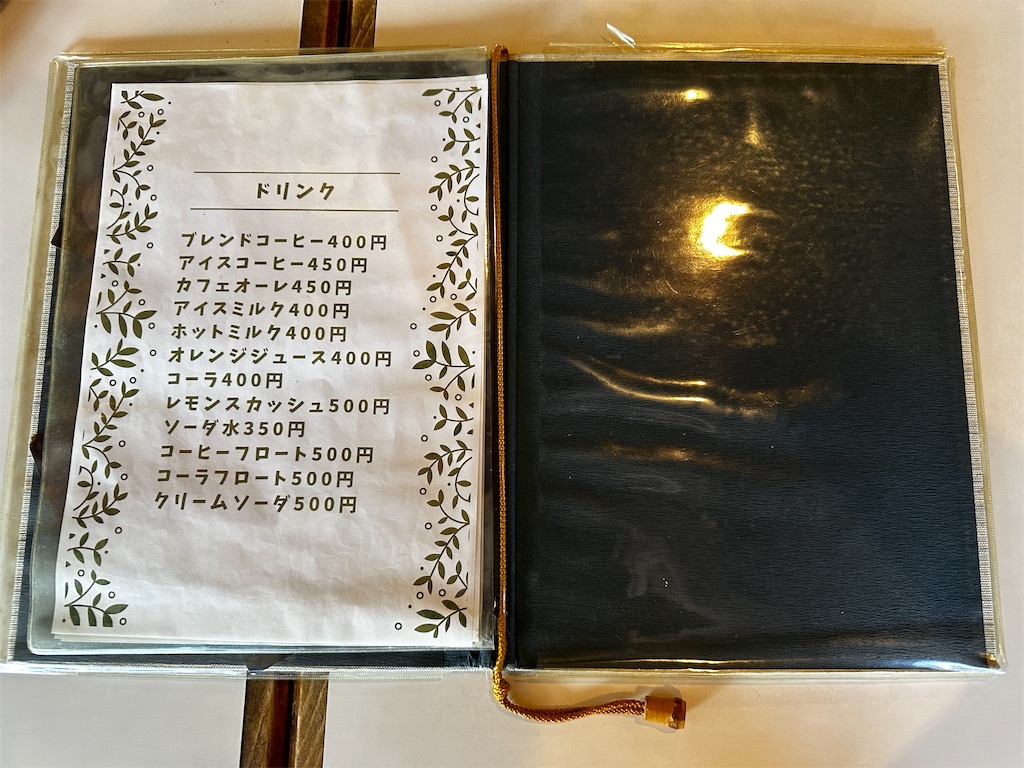 ドリンク
ブレンドコーヒー400円
アイスコーヒー450円
カフェオーレ450円
アイスミルク400円
ホットミルク400円
オレンジジュース400円
コーラ400円
レモンスカッシュ500円
ソーダ水350円
コーヒーフロート500円
コーラフロート500円
クリームソーダ500円